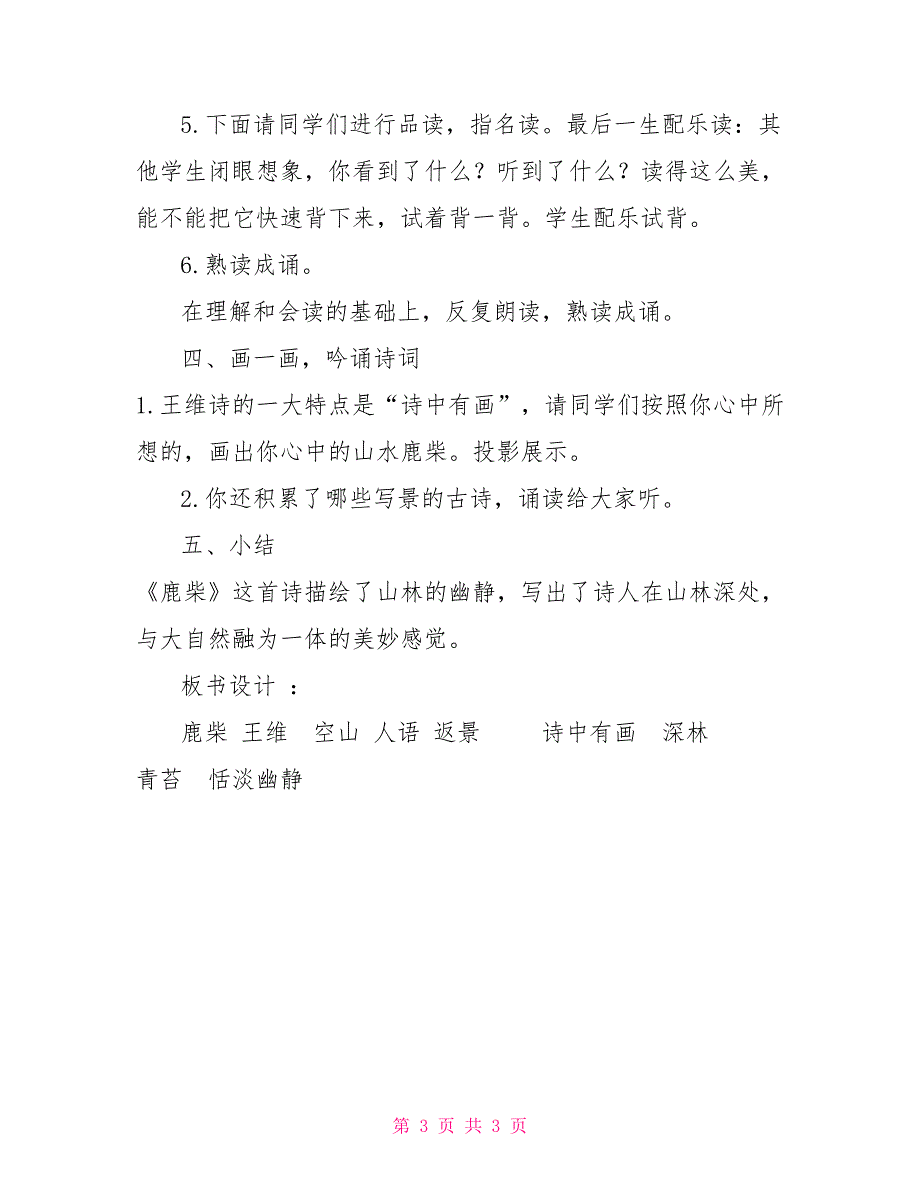 5.下面请同学们进行品读，指名读。最后一生配乐读：其
他学生闭眼想象，你看到了什么？听到了什么？读得这么美，
能不能把它快速背下来，试着背一背。学生配乐试背。
6.熟读成诵。
在理解和会读的基础上，反复朗读，熟读成诵。
四、画一画，吟诵诗词
1.王维诗的一大特点是“诗中有画”，请同学们按照你心中所
想的，画出你心中的山水鹿柴。投影展示。
2.你还积累了哪些写景的古诗，诵读给大家听。
五、小结
《鹿柴》这首诗描绘了山林的幽静，写出了诗人在山林深处，
与大自然融为一体的美妙感觉。
板书设计 ：
鹿柴 王维 空山 人语 返景 诗中有画 深林
青苔 恬淡幽静
第 3 页 共 3 页